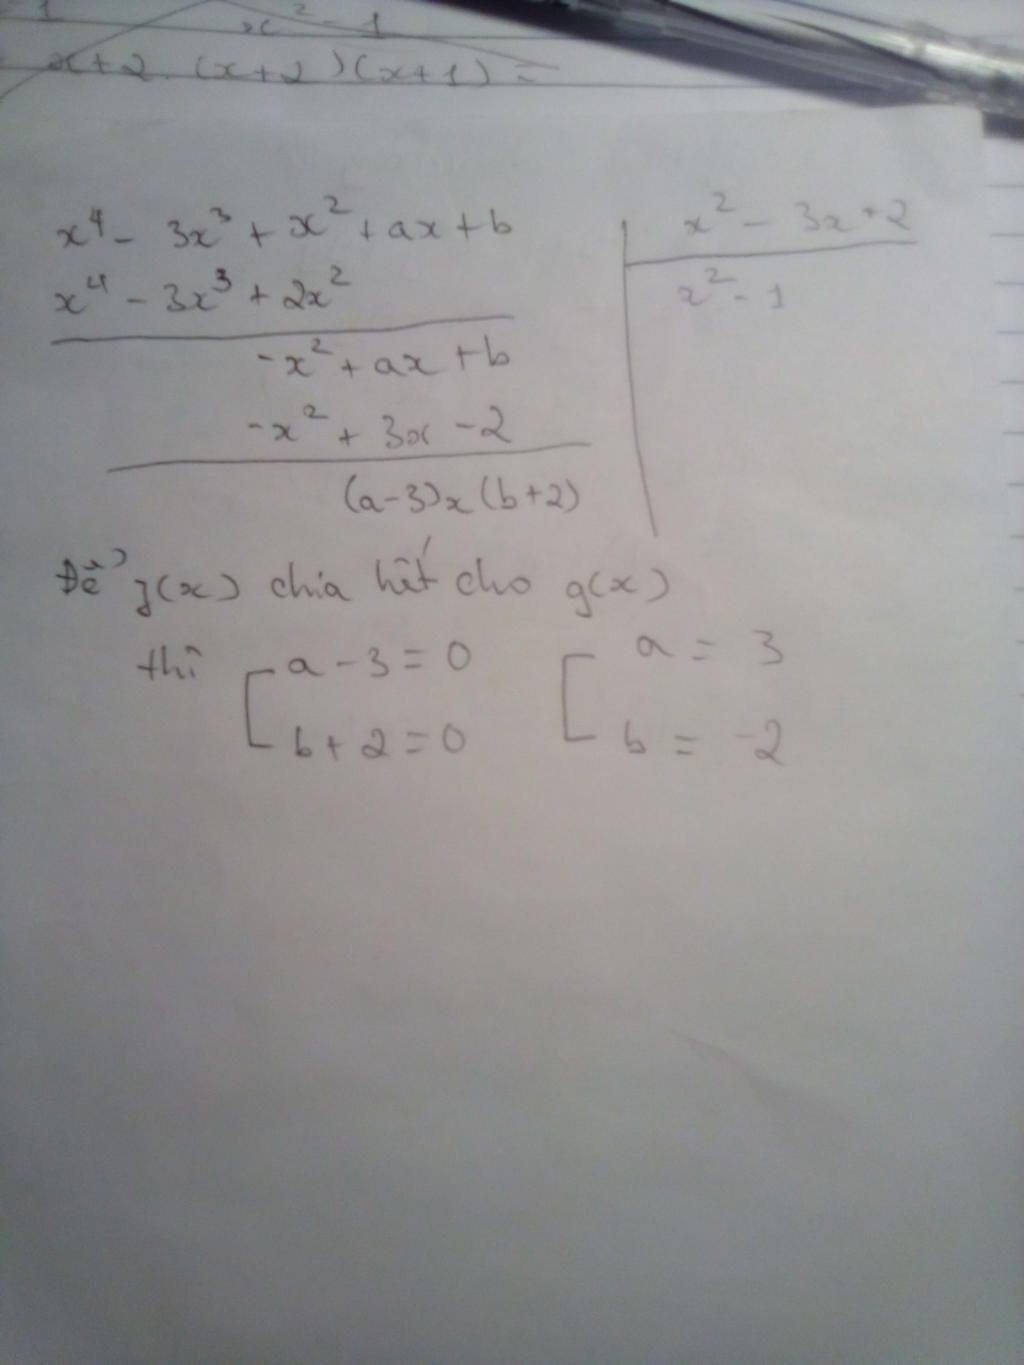 x² - 1
x+2 (x+2)(x+1) =
x⁴ - 3x³ + x² + ax + b
x² - 3x + 2
x⁴ - 3x³ + 2x²
x² - 1
-x² + ax + b
-x² + 3x - 2
(a-3)x (b+2)
Để f(x) chia hết cho g(x)
thì [ a - 3 = 0 [ a = 3
b + 2 = 0 b = -2